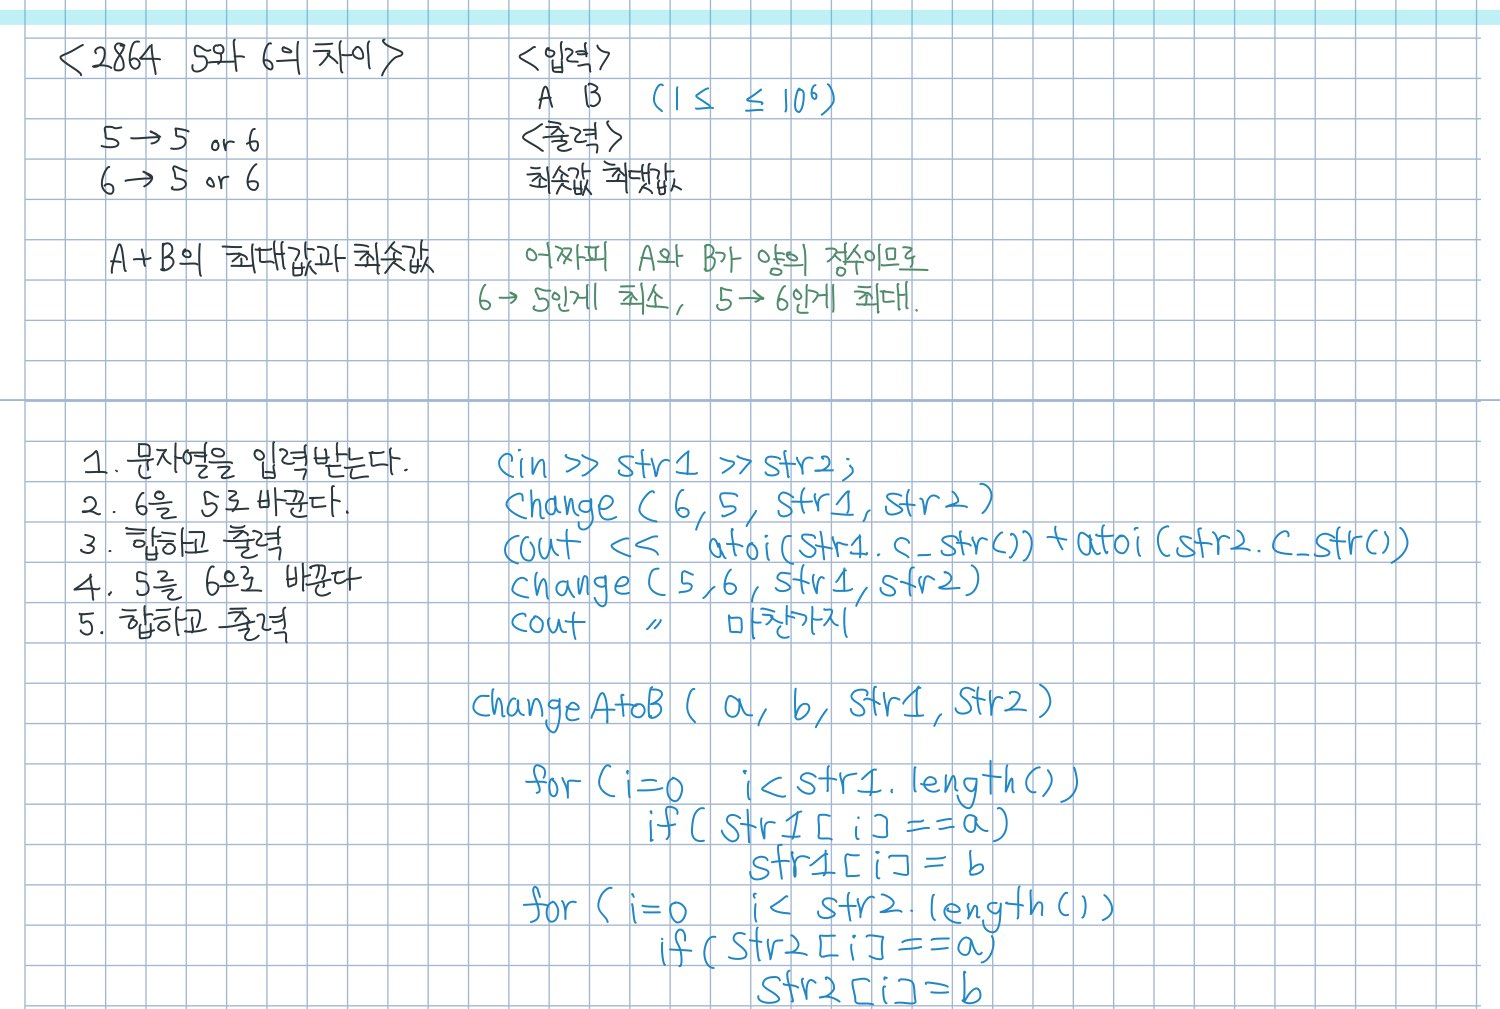 <2864 5와 6의 차이>
5 → 5 or 6
6 → 5 or 6
A+B의 최대값과 최솟값
<입력>
A B (1 ≤ ≤ 10⁶)
<출력>
최솟값 최댓값
어짜피 A와 B가 양의 정수이므로
6 → 5인게 최소, 5 → 6인게 최대.
1. 문자열을 입력받는다.
2. 6을 5로 바꾼다.
3. 합하고 출력
4. 5를 6으로 바꾼다
5. 합하고 출력
cin >> str1 >> str2;
change (6, 5, str1, str2)
cout << atoi(str1.c_str()) + atoi(str2.c_str())
change (5, 6, str1, str2)
cout 〃 마찬가지
changeAtoB ( a, b, str1, str2)
for (i=0 i< str1.length())
if( str1[i] ==a)
str1[i] = b
for (i=0 i< str2.length())
if( str2[i] ==a)
str2[i]=b